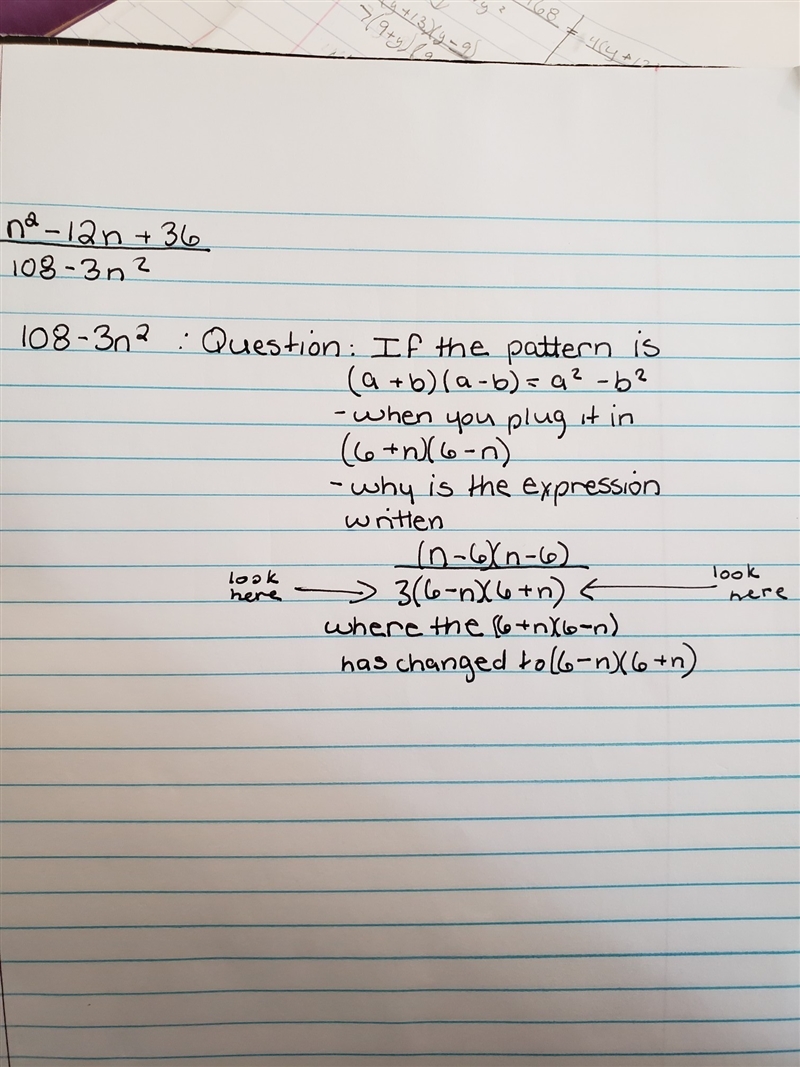 (y+13)(y-9)
7(9+y)(9
y²
168
= 4(y+12
n²-12n+36
108-3n²
108-3n² : Question: If the pattern is
(a+b)(a-b)=a²-b²
-when you plug it in
(6+n)(6-n)
-why is the expression
written
(n-6)(n-6)
look here → 3(6-n)(6+n) ← look here
where the (6+n)(6-n)
has changed to (6-n)(6+n)